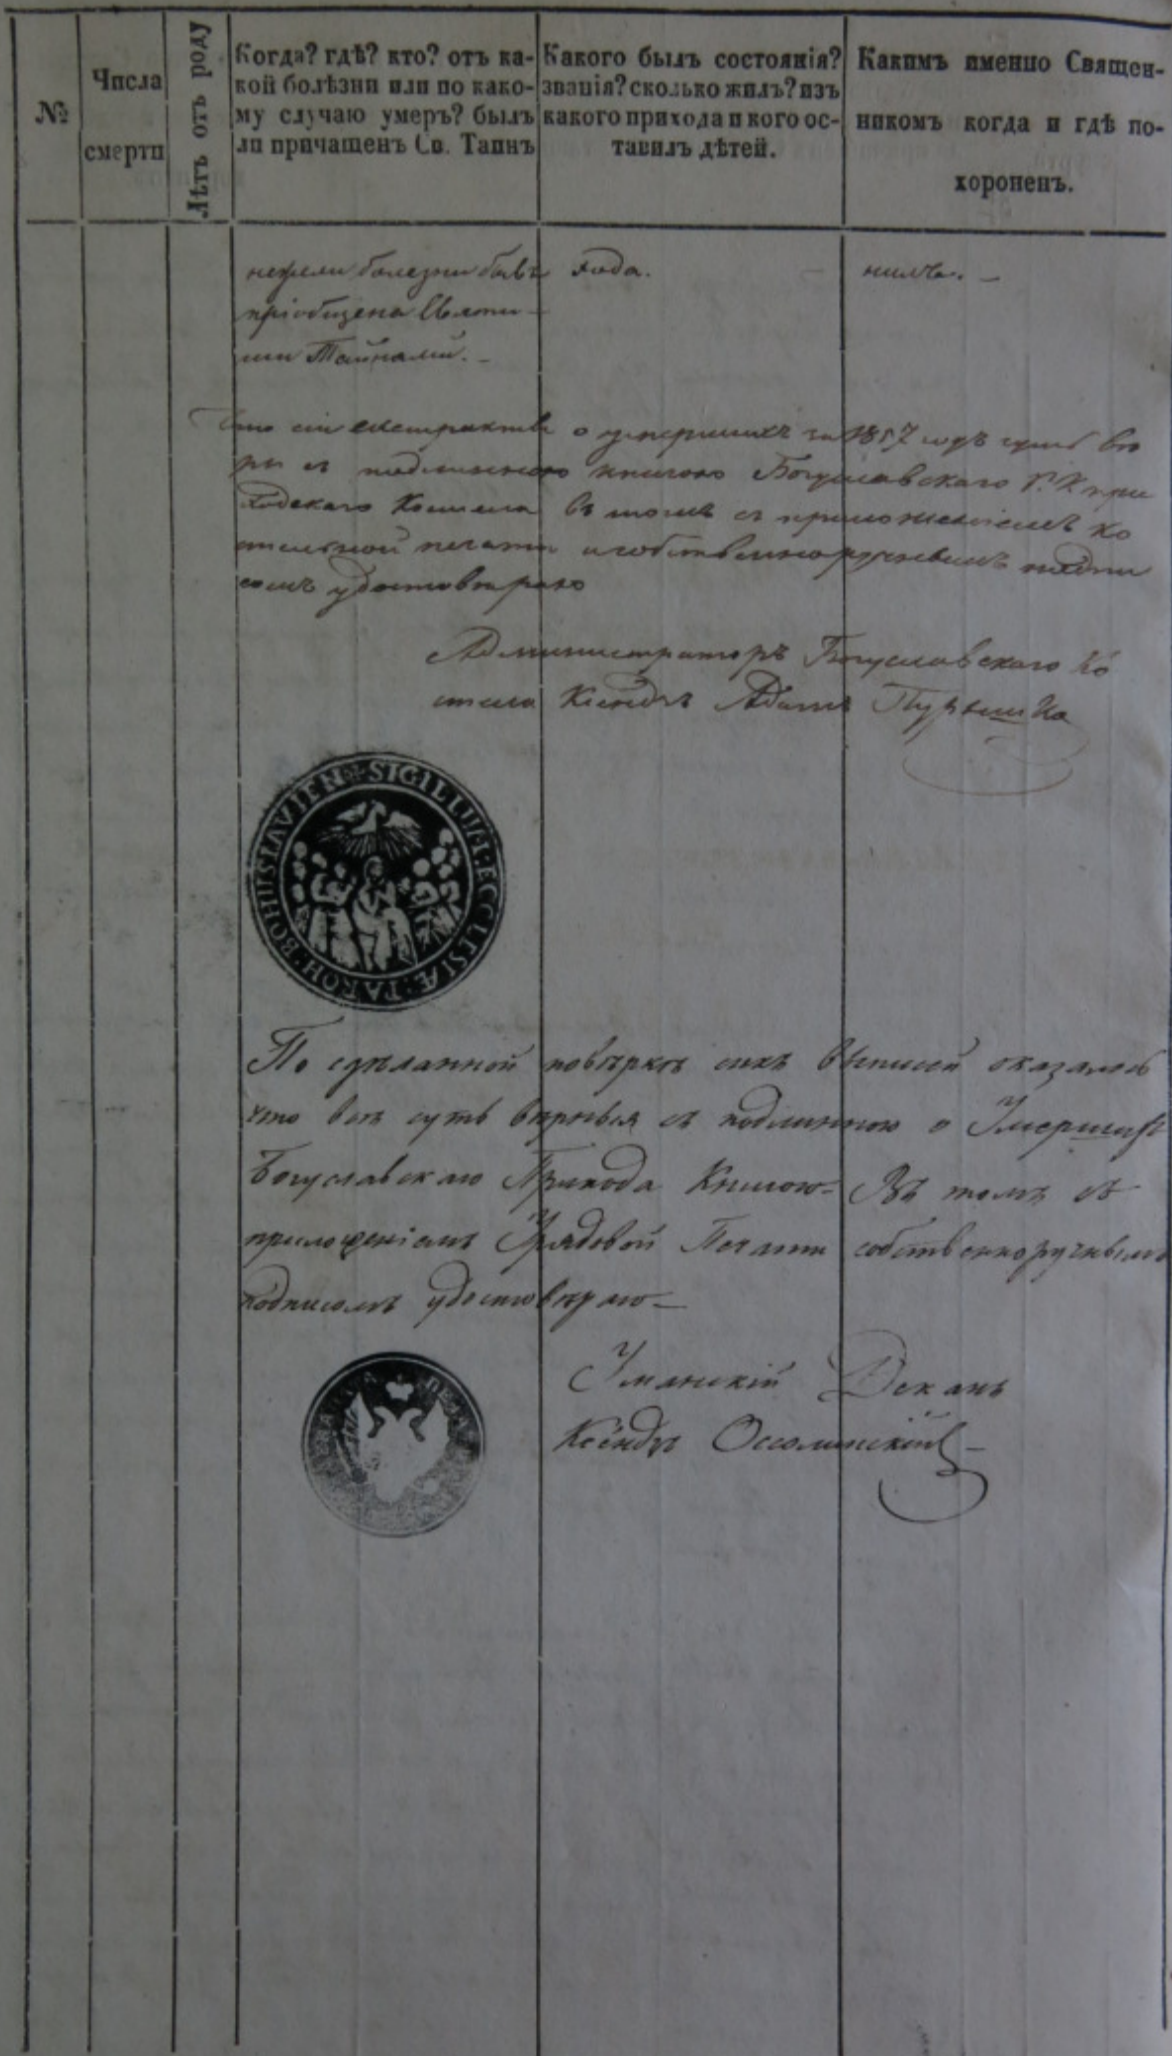 №
Числа
смерти
Лѣтъ отъ роду
Когда? гдѣ? кто? отъ ка-
кой болѣзни или по како-
му случаю умеръ? былъ
ли причащенъ Св. Таинъ
Какого былъ состоянія?
званія? сколько жилъ? изъ
какого прихода и кого ос-
тавилъ дѣтей.
Какимъ именно Священ-
никомъ когда и гдѣ по-
хороненъ.
болезни бывъ
пріобщена Святы-
ми Тайнами.
хода.
Что сіи екстракта о умершихъ за 1857 годъ суть вѣ
рн съ подлинною книгою Богуславскаго Р. К. при
ходскаго Костела въ томъ съ приложеніемъ ко
стельной печати и собственноручнымъ подпи
сомъ удостовѣряю
Администраторъ Богуславскаго Ко
стела Ксендзъ Адамъ
SIGILLUM ECCLESIÆ PAROH BOHUSLAVIEN
По сдѣланной повѣркѣ сихъ выписей оказалось
что всѣ суть вѣрныя съ подлинною о Умершихъ
Богуславскаго Прихода Книгою. Въ томъ съ
приложеніемъ Урядовой Печати собственноручнымъ
подписомъ удостовѣряю
Уманскій Деканъ
Ксёндзъ Оссолинскій